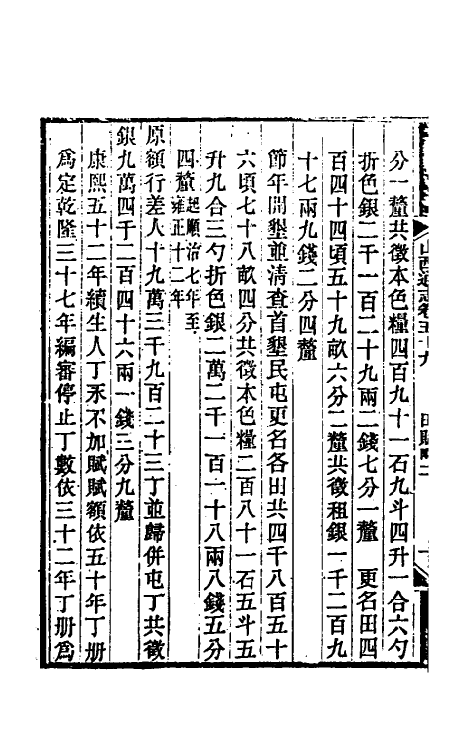 分一釐共徵本色糧四百九十一石九斗四升一合六勺
折色銀二千一百二十九兩二錢七分一釐　更名田四
百四十四頃五十九畝六分二釐共徵租銀一千二百九
十七兩九錢二分四釐
節年開墾並清查首墾民屯更名各田共四千八百五十
六頃七十八畝四分共徵本色糧二百八十一石五斗五
升九合三勺折色銀二萬二千一百一十八兩八錢五分
四釐起順治七年至雍正十二年
原額行差人十九萬三千九百二十三丁並歸併屯丁共徵
銀九萬四千二百四十六兩一錢三分九釐
康熙五十二年續生人丁永不加賦賦額依五十年丁册
爲定乾隆三十七年編審停止丁數依三十二年丁册爲
山西通志卷五十九　田賦略二